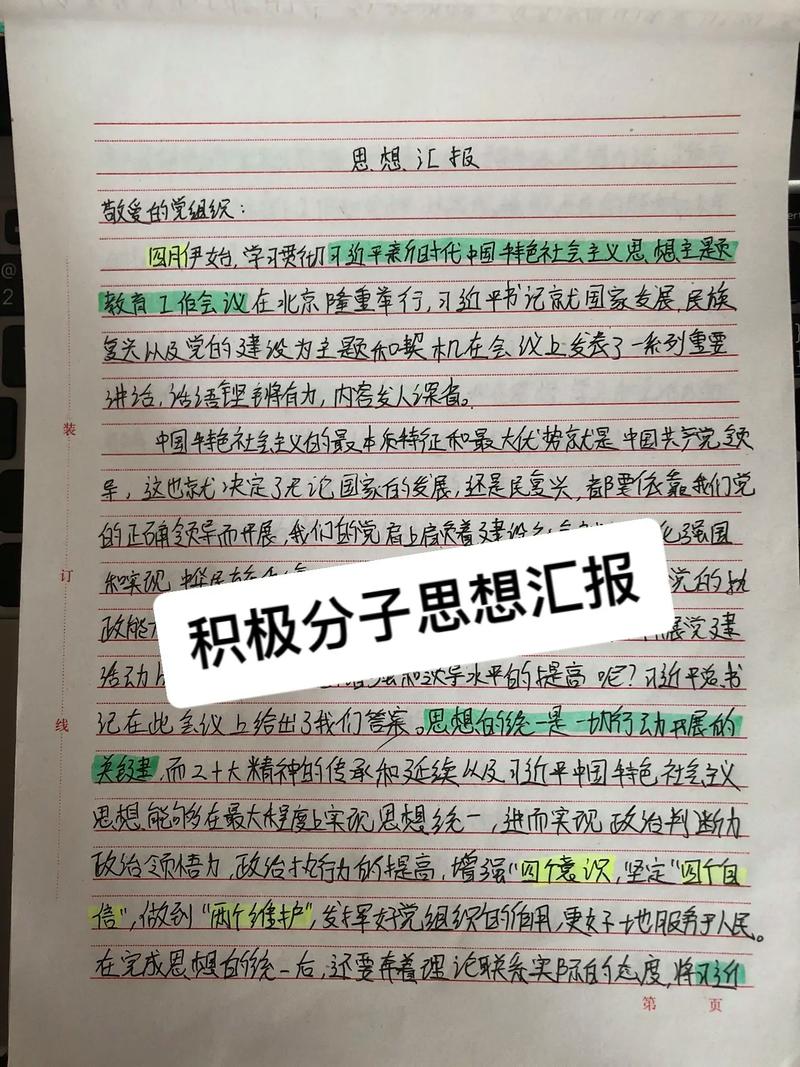 思想汇报
敬爱的党组织：
四月伊始，学习贯彻习近平新时代中国特色社会主义思想主题
教育工作会议在北京隆重举行，习近平书记就国家发展，民族
复兴以及党的建设为主题和契机在会议上发表了一系列重要
讲话，话语铿锵有力，内容发人深省。
中国特色社会主义的最本质特征和最大优势就是中国共产党领
导，这也就决定了无论国家的发展，还是民复兴，都要依靠我们党
的正确领导而开展，我们的党肩上肩负着建设社会 化强国
和实现中华民族 党的执
政能 展党建
活动 和领导水平的提高呢？习近平总书
记在此会议上给出了我们答案。思想的统一是一切行动开展的
关键，而二十大精神的传承和延续以及习近平中国特色社会主义
思想能够在最大程度上实现思想统一，进而实现政治判断力
政治领悟力，政治执行力的提高，增强"四个意识，坚定"四个自
信"，做到"两个维护"，发挥好党组织的作用，更好地服务于人民。
在完成思想的统一后，还要奔着理论联系实际的态度，将习近
装
订
线
第 页
积极分子思想汇报